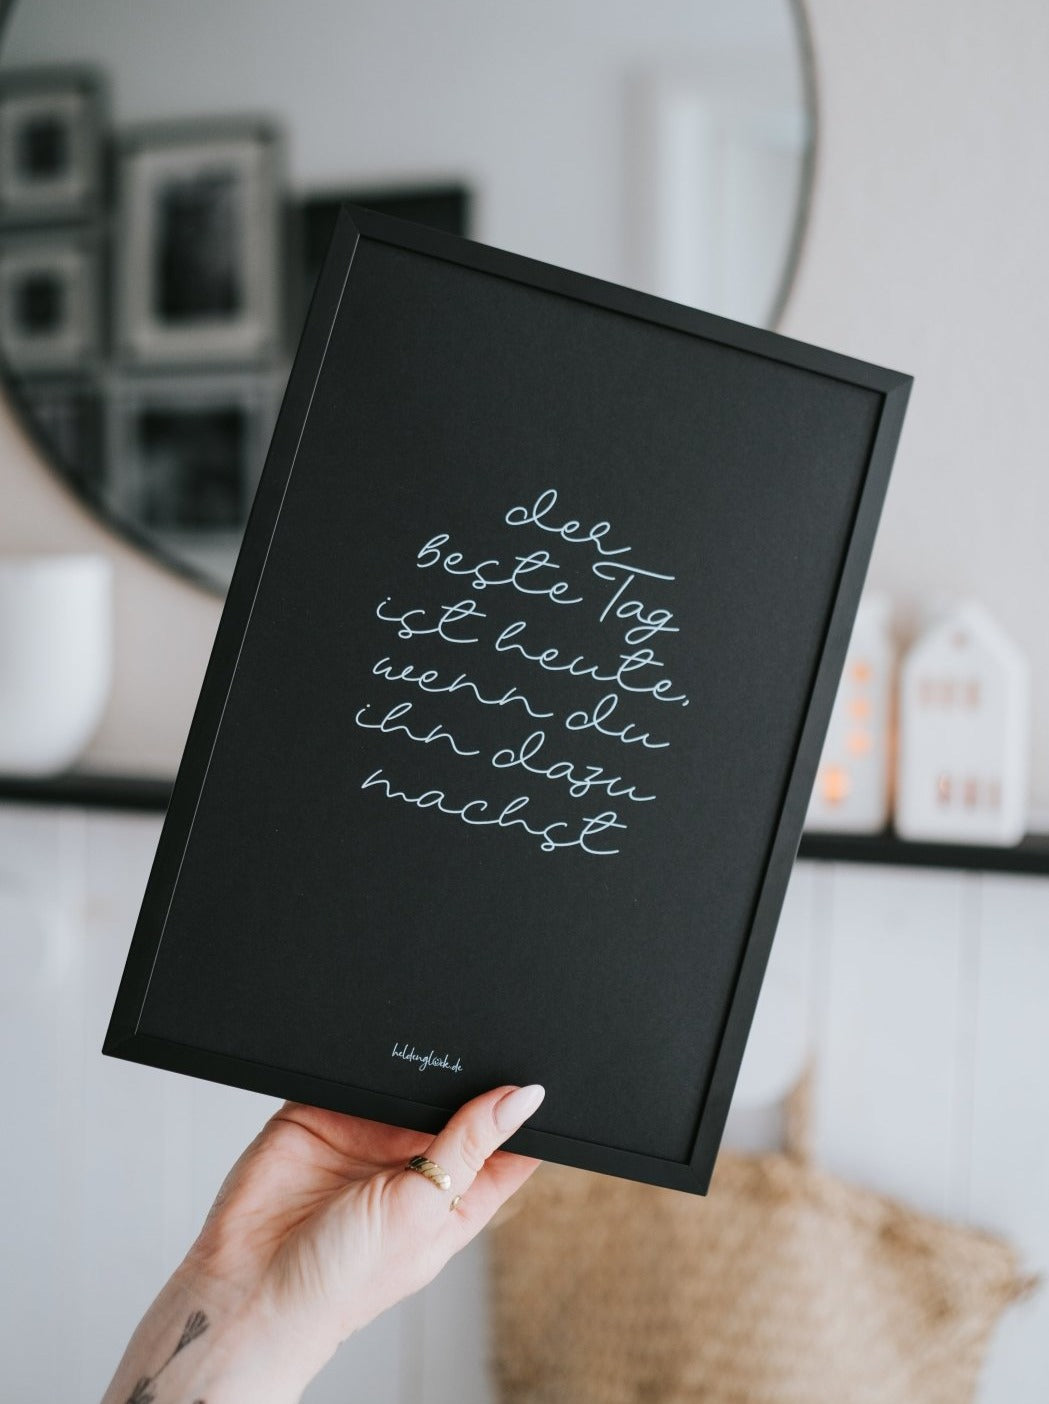 der
beste Tag
ist heute,
wenn du
ihn dazu
machst
heldenglück.de